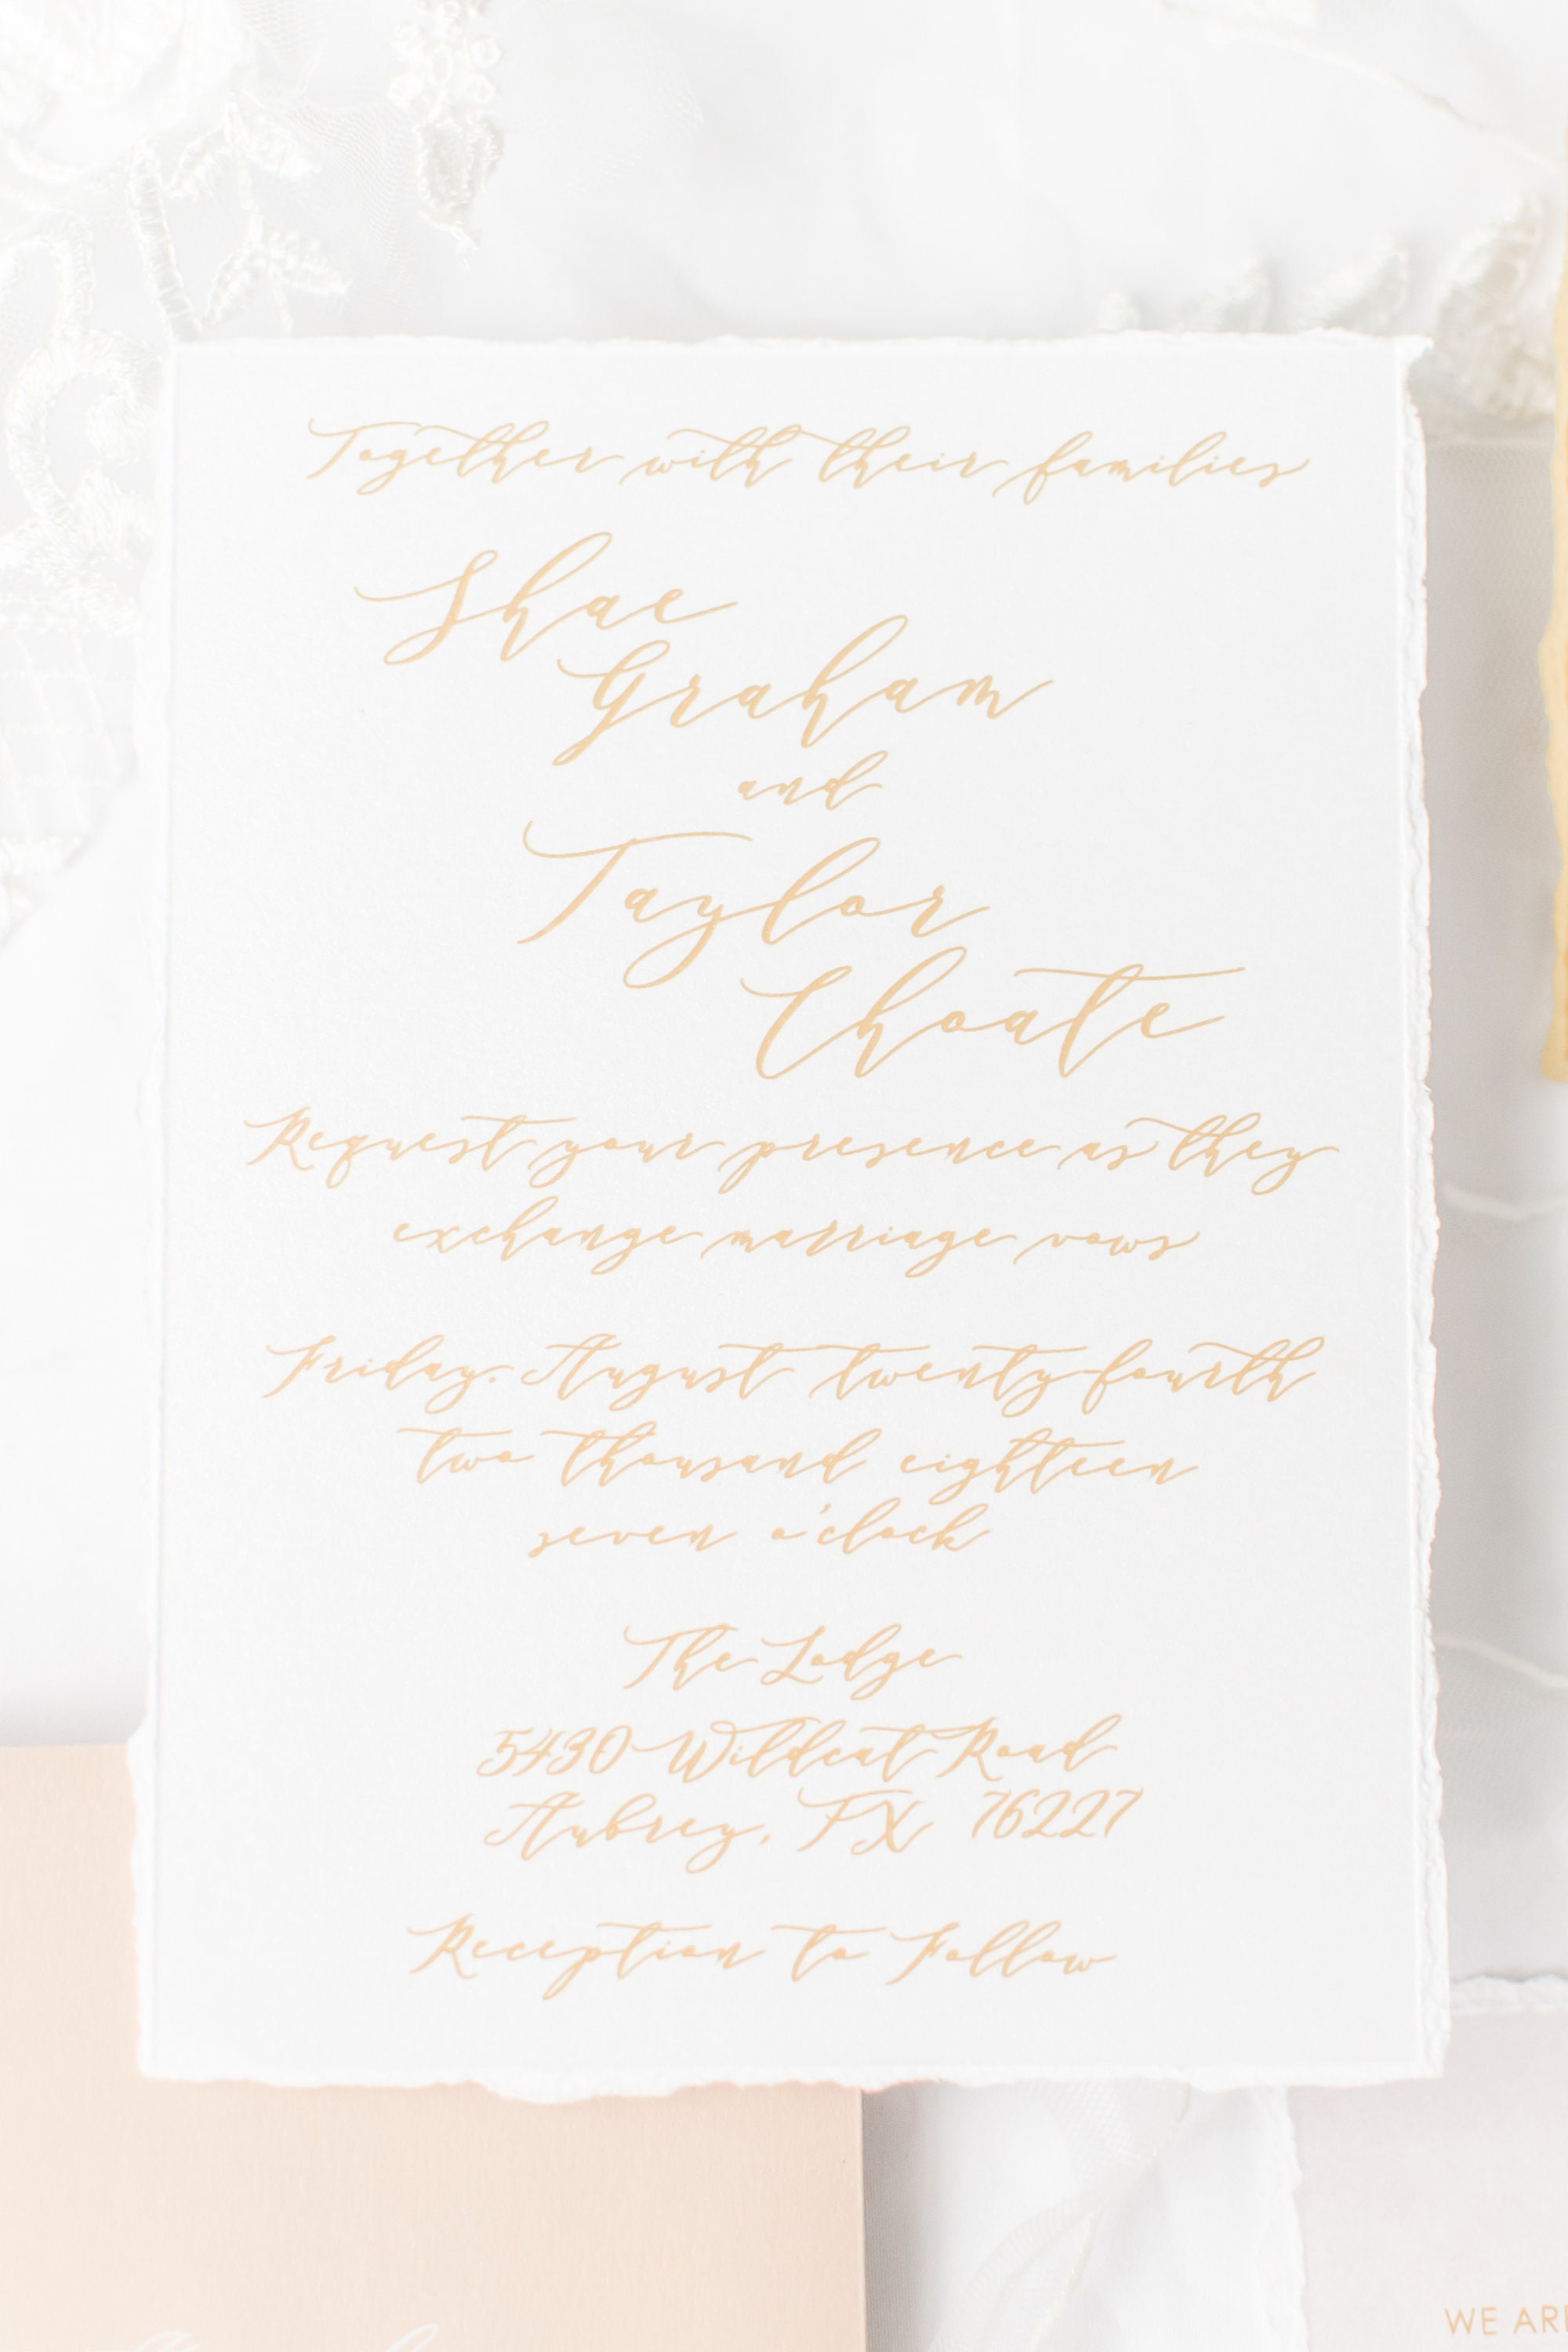 Together with their families
Shae
Graham
and
Taylor
Choate
Request your presence as they
exchange marriage vows
Friday, August twenty-fourth
two thousand eighteen
seven o'clock
The Lodge
5430 Wildcat Road
Aubrey, TX 76227
Reception to Follow
WE ARE